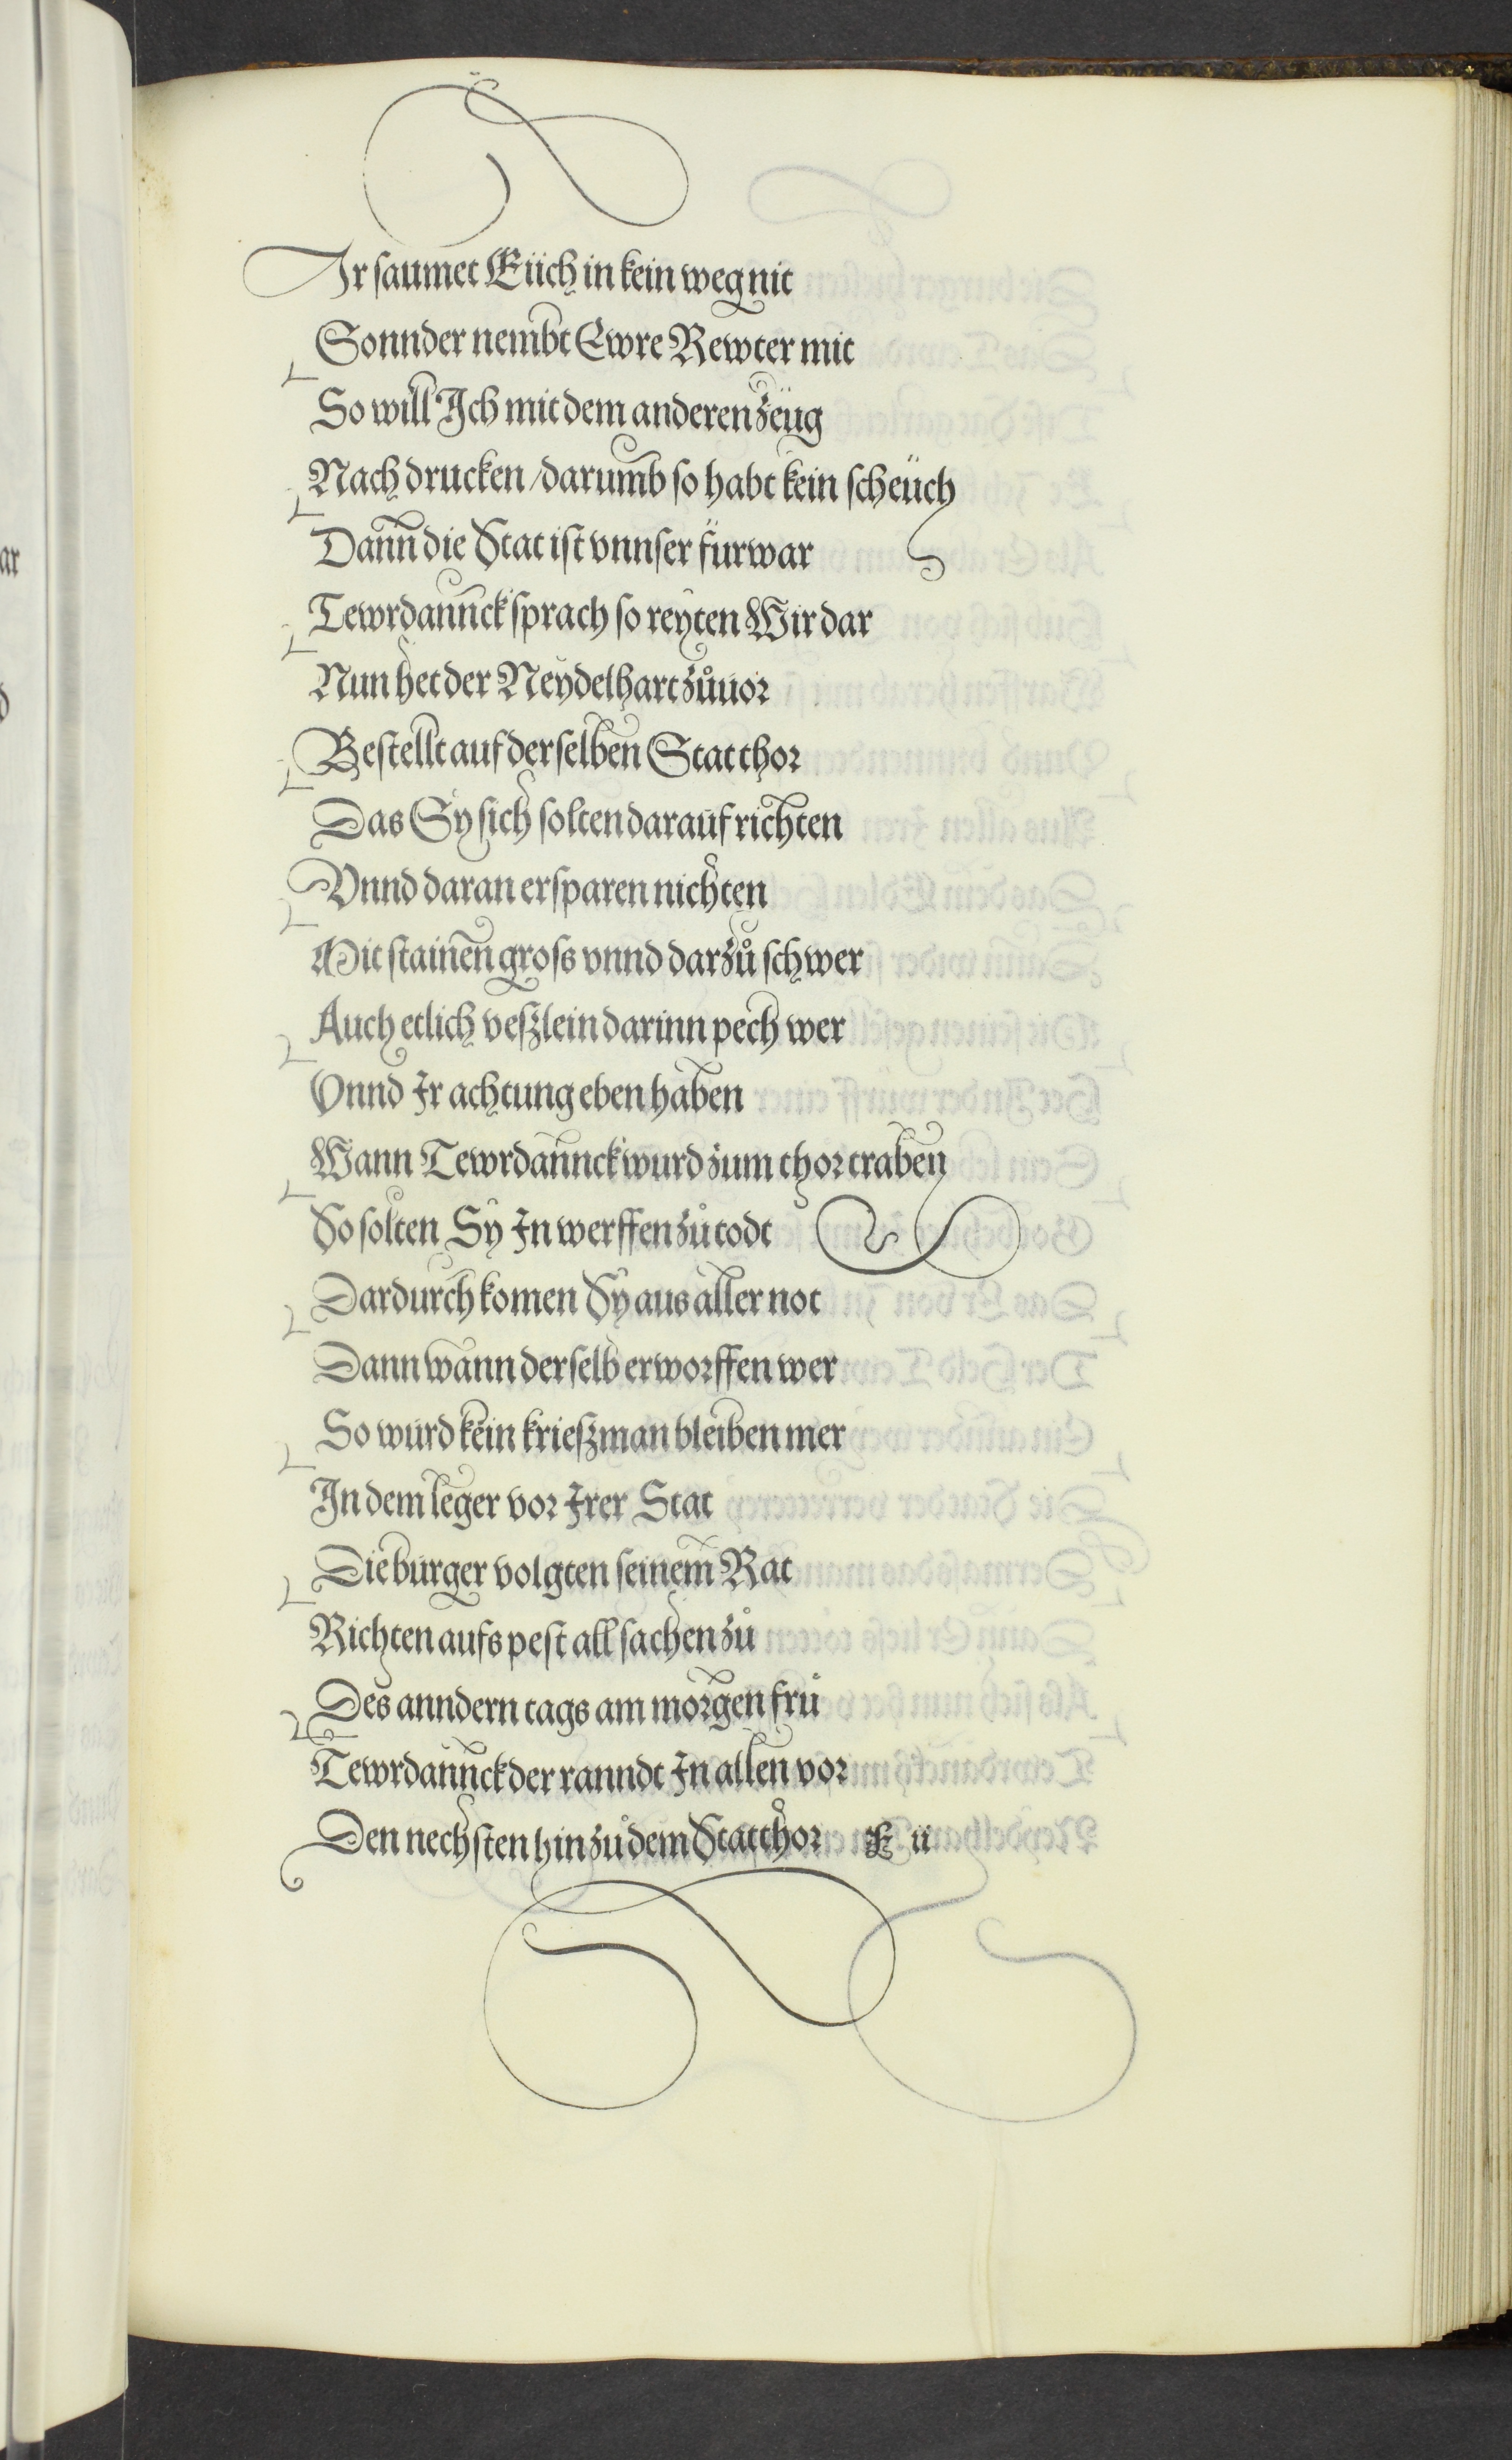 Ir saumet Eüch in kein weg nit
Sonnder nembt Ewre Rewter mit
So will Ich mit dem anderen zeüg
Nach drucken / darumb so habt kein scheüch
Dann die Stat ist vnnser fürwar
Tewrdannck sprach so reyten Wir dar
Nun het der Neydelhart zůuor
Bestellt auf derselben Stat thor
Das Sy sich solten darauf richten
Vnnd daran ersparen nichten
Mit stainen gross vnnd darzů schwer
Auch etlich veszlein darinn pech wer
Vnnd Ir achtung eben haben
Wann Tewrdannck wurd zum thor traben
So solten Sy In werffen zů todt
Dardurch komen Sy aus aller not
Dann wann derselb erworffen wer
So wurd kein krieszman bleiben mer
In dem leger vor Irer Stat
Die burger volgten seinem Rat
Richten aufs pest all sachen zů
Des anndern tags am morgen frů
Tewrdannck der ranndt In allen vor
Den nechsten hin zů dem Stat thor E ii
ar